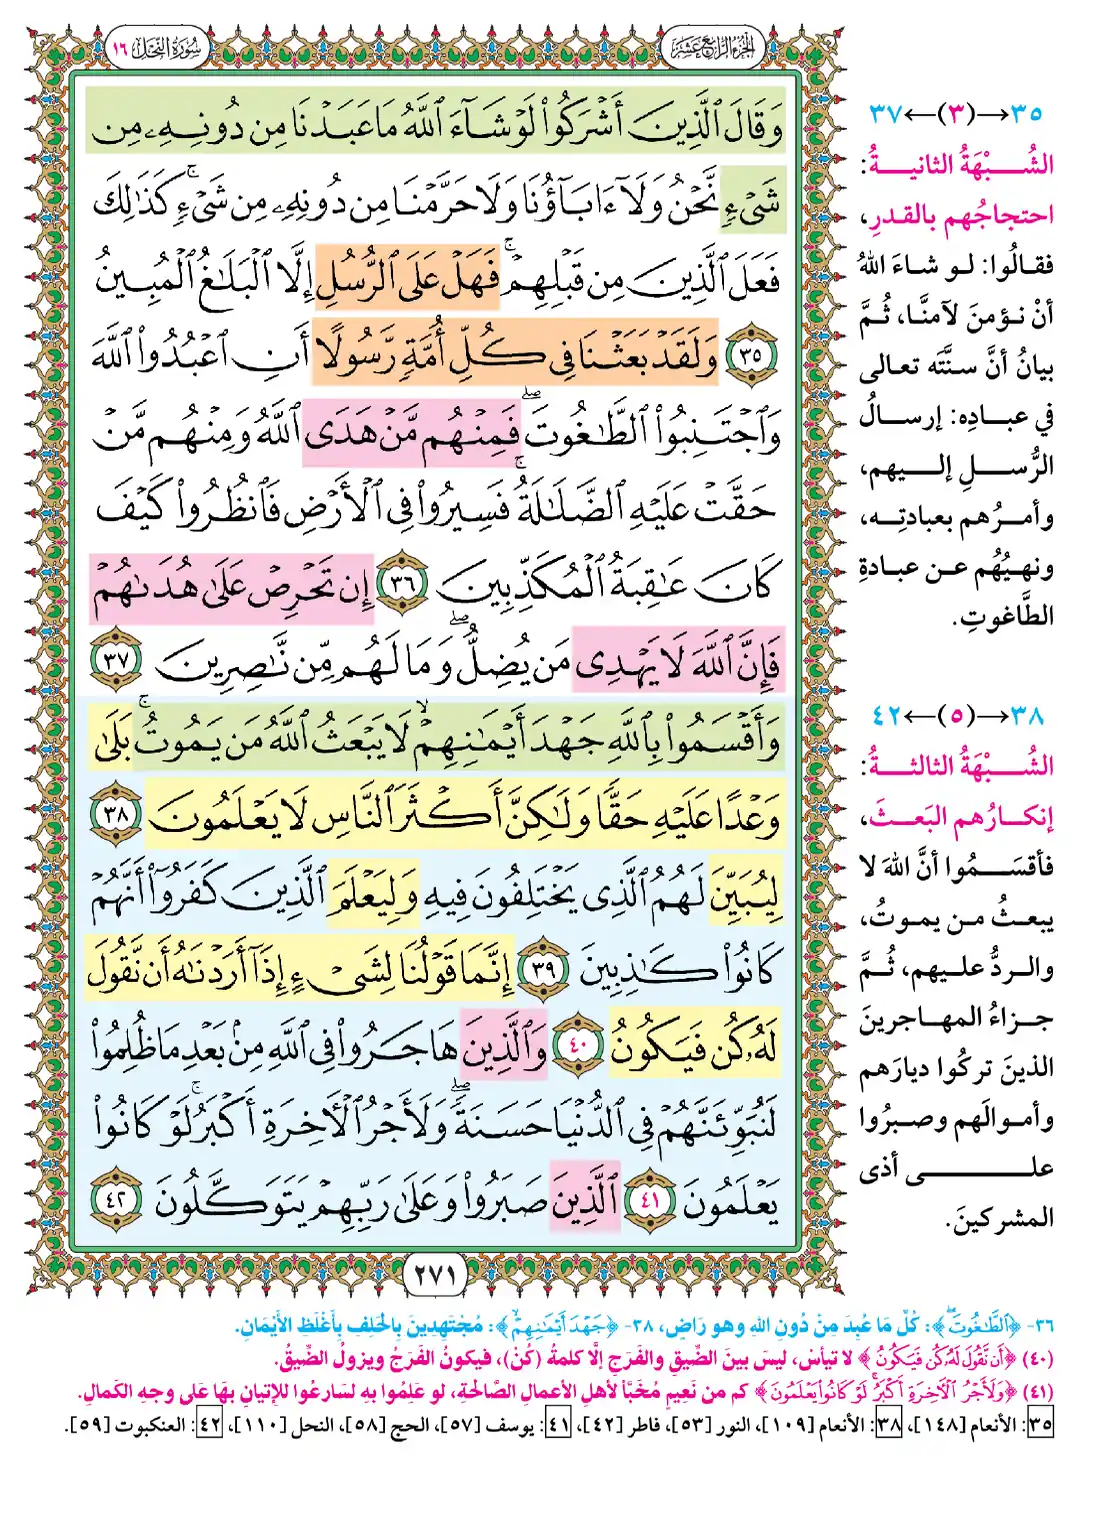 الجزء الرابع عشر
سورة النحل ١٦
وَقَالَ ٱلَّذِينَ أَشْرَكُوا۟ لَوْ شَآءَ ٱللَّهُ مَا عَبَدْنَا مِن دُونِهِۦ مِن
شَىْءٍ نَّحْنُ وَلَآ ءَابَآؤُنَا وَلَا حَرَّمْنَا مِن دُونِهِۦ مِن شَىْءٍ ۚ كَذَٰلِكَ
فَعَلَ ٱلَّذِينَ مِن قَبْلِهِمْ ۚ فَهَلْ عَلَى ٱلرُّسُلِ إِلَّا ٱلْبَلَٰغُ ٱلْمُبِينُ
٣٥ وَلَقَدْ بَعَثْنَا فِى كُلِّ أُمَّةٍ رَّسُولًا أَنِ ٱعْبُدُوا۟ ٱللَّهَ
وَٱجْتَنِبُوا۟ ٱلطَّٰغُوتَ ۖ فَمِنْهُم مَّنْ هَدَى ٱللَّهُ وَمِنْهُم مَّنْ
حَقَّتْ عَلَيْهِ ٱلضَّلَٰلَةُ ۚ فَسِيرُوا۟ فِى ٱلْأَرْضِ فَٱنظُرُوا۟ كَيْفَ
كَانَ عَٰقِبَةُ ٱلْمُكَذِّبِينَ ٣٦ إِن تَحْرِصْ عَلَىٰ هُدَىٰهُمْ
فَإِنَّ ٱللَّهَ لَا يَهْدِى مَن يُضِلُّ ۖ وَمَا لَهُم مِّن نَّٰصِرِينَ ٣٧
وَأَقْسَمُوا۟ بِٱللَّهِ جَهْدَ أَيْمَٰنِهِمْ ۙ لَا يَبْعَثُ ٱللَّهُ مَن يَمُوتُ ۚ بَلَىٰ
وَعْدًا عَلَيْهِ حَقًّا وَلَٰكِنَّ أَكْثَرَ ٱلنَّاسِ لَا يَعْلَمُونَ ٣٨
لِيُبَيِّنَ لَهُمُ ٱلَّذِى يَخْتَلِفُونَ فِيهِ وَلِيَعْلَمَ ٱلَّذِينَ كَفَرُوٓا۟ أَنَّهُمْ
كَانُوا۟ كَٰذِبِينَ ٣٩ إِنَّمَا قَوْلُنَا لِشَىْءٍ إِذَآ أَرَدْنَٰهُ أَن نَّقُولَ
لَهُۥ كُن فَيَكُونُ ٤٠ وَٱلَّذِينَ هَاجَرُوا۟ فِى ٱللَّهِ مِنۢ بَعْدِ مَا ظُلِمُوا۟
لَنُبَوِّئَنَّهُمْ فِى ٱلدُّنْيَا حَسَنَةً ۖ وَلَأَجْرُ ٱلْءَاخِرَةِ أَكْبَرُ ۚ لَوْ كَانُوا۟
يَعْلَمُونَ ٤١ ٱلَّذِينَ صَبَرُوا۟ وَعَلَىٰ رَبِّهِمْ يَتَوَكَّلُونَ ٤٢
٢٧١
٣٥→(٣)←٣٧
الشُّبْهَةُ الثانيةُ:
احتجاجُهم بالقدرِ،
فقالُوا: لو شاءَ اللهُ
أنْ نؤمنَ لآمنَّا، ثُمَّ
بيانُ أنَّ سنَّتَه تعالى
في عبادِه: إرسالُ
الرُّسلِ إليهم،
وأمرُهم بعبادتِه،
ونهيُهُم عن عبادةِ
الطَّاغوتِ.
٣٨→(٥)←٤٢
الشُّبْهَةُ الثالثةُ:
إنكارُهم البَعثَ،
فأقسَمُوا أنَّ اللهَ لا
يبعثُ من يموتُ،
والردُّ عليهم، ثُمَّ
جزاءُ المهاجرينَ
الذينَ تركُوا ديارَهم
وأموالَهم وصبرُوا
على أذى
المشركينَ.
٣٦- ﴿ٱلطَّٰغُوتَ ۖ﴾: كُلَّ مَا عُبِدَ مِنْ دُونِ اللهِ وهو رَاضٍ، ٣٨- ﴿جَهْدَ أَيْمَٰنِهِمْ ۙ﴾: مُجْتَهِدِينَ بِالحَلِفِ بِأَغْلَظِ الأَيْمَانِ.
(٤٠) ﴿أَن نَّقُولَ لَهُۥ كُن فَيَكُونُ﴾ لا تيأس، ليسَ بينَ الضِّيقِ والفَرَجِ إلَّا كلمةُ (كُنْ)، فيكونُ الفَرَجُ ويزولُ الضِّيقُ.
(٤١) ﴿وَلَأَجْرُ ٱلْءَاخِرَةِ أَكْبَرُ ۚ لَوْ كَانُوا۟ يَعْلَمُونَ﴾ كم من نَعِيمٍ مُخَبَّأٍ لأهلِ الأعمالِ الصَّالحَةِ، لو عَلِمُوا بهِ لسَارعُوا للإتيانِ بهَا عَلى وجهِ الكَمالِ.
٣٥: الأنعام [١٤٨]، ٣٨: الأنعام [١٠٩]، النور [٥٣]، فاطر [٤٢]، ٤١: يوسف [٥٧]، الحج [٥٨]، النحل [١١٠]، ٤٢: العنكبوت [٥٩].